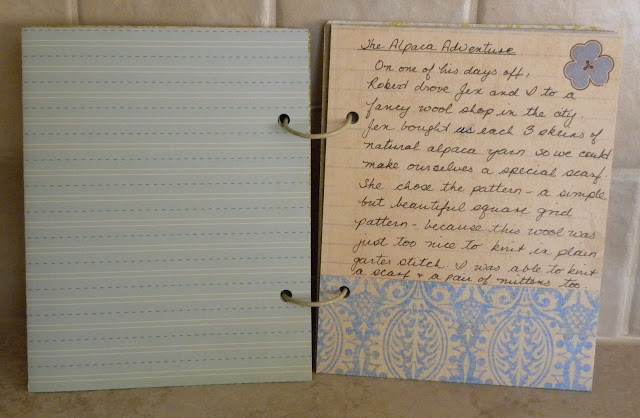 The Alpaca Adventure
On one of his days off,
Robert drove Jen and I to a
fancy wool shop in the city.
Jen bought us each 3 skeins of
natural alpaca yarn so we could
make ourselves a special scarf.
She chose the pattern - a simple
but beautiful square grid
pattern - because this wool was
just too nice to knit in plain
garter stitch. I was able to knit
a scarf + a pair of mittens too.